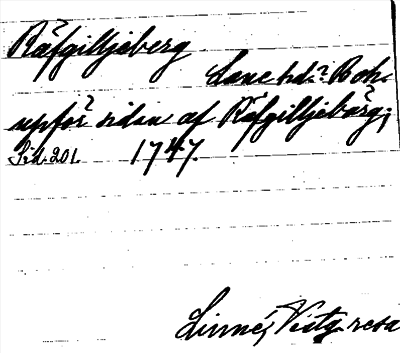 Räfgilljeberg
Lane hd.? Boh.
uppför sidan af Räfgilljebärg;
Sid. 201. 1747.
Linné, Västg. resa